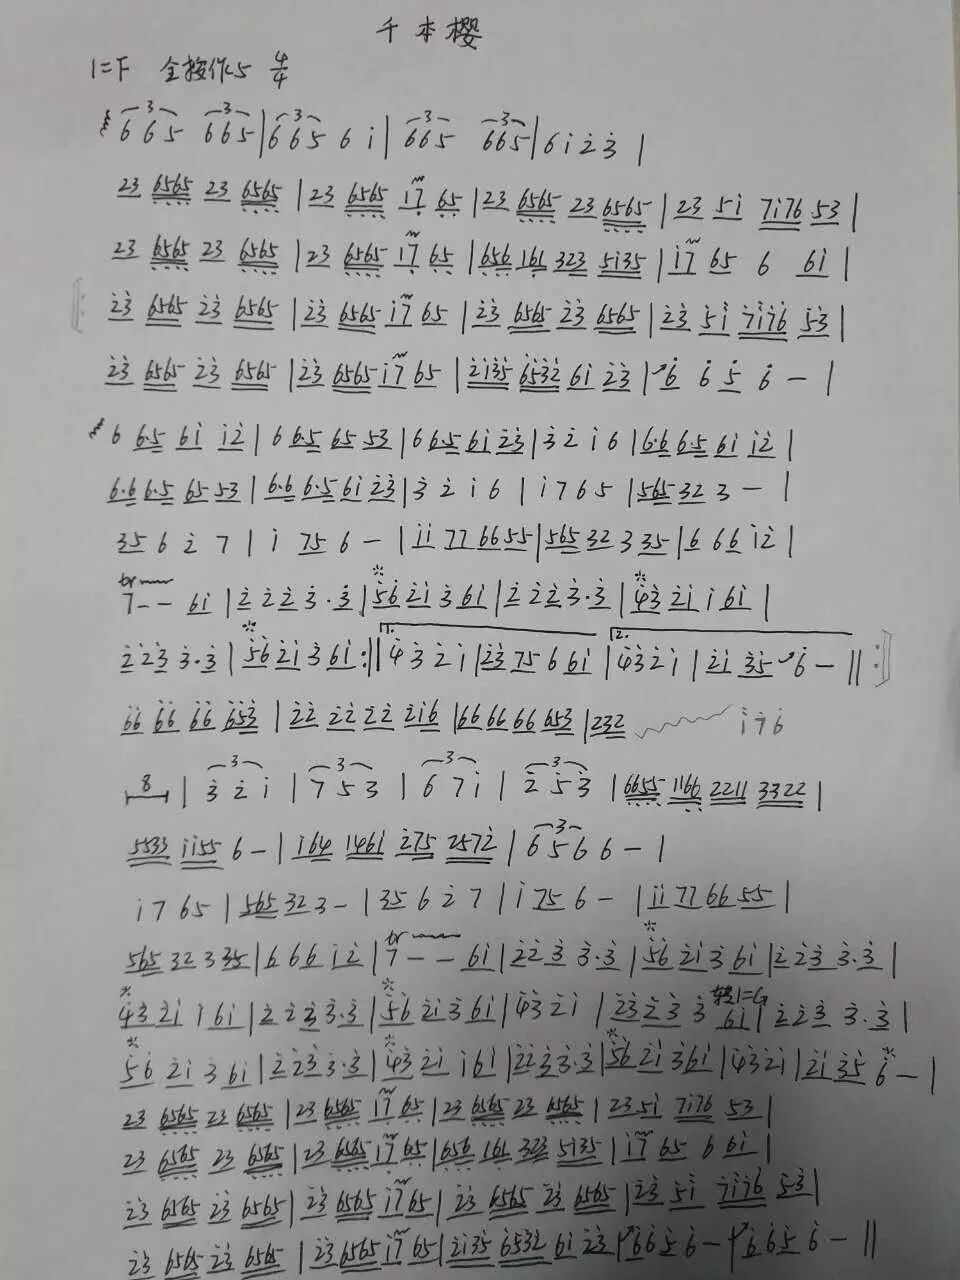 千本樱
1=F 全按作5 4/4
665 665|665 6i|665 665|6i23|
23 6565 23 6565|23 6565 i7 65|23 6565 23 6565|23 5i 7i76 53|
23 6565 23 6565|23 6565 i7 65|656 161 323 5i35|i7 65 6 6i|
23 6565 23 6565|23 6565 i7 65|23 6565 23 6565|23 5i 7i76 53|
23 6565 23 6565|23 6565 i7 65|2i35 6532 6i 23|6 6 5 6 -|
6 6·5 6i i2|6 6·5 65 53|6 6·5 6i 23|3 2 i 6|6·6 6·5 6i i2|
6·6 6·5 65 53|6·6 6·5 6i 23|3 2 i 6|i 7 6 5|565 32 3 -|
35 6 2 7|i 75 6 -|ii 77 66 55|565 32 3 35|6 66 i2|
tr 7 - - 6i|2 2 2 3 3·3|56 2i 3 6i|2 2 2 3 3·3|43 2i i 6i|
2 2 3 3·3|56 2i 3 6i:|1. 4 3 2 i|23 75 6 6i|2. 43 2i|2i 35 6 -||
66 66 66 653|22 22 22 2i6|66 66 66 653|232 i76
8|3 2 i|7 5 3|6 7 i|2 5 3|6655 1166 2211 3322|
5533 ii55 6 -|i64 1461 275 2572|6566 -|
i 7 6 5|565 32 3 -|35 6 2 7|i 75 6 -|ii 77 66 55|
565 32 3 35|6 6 6 i2|tr 7 - - 6i|2 2 3 3·3|56 2i 3 6i|2 2 3 3·3|
43 2i i 6i|2 2 2 3 3·3|56 2i 3 6i|43 2i|23 2 3 3 转1=G 6i|2 2 3 3·3|
56 2i 3 6i|2 2 3 3·3|43 2i i 6i|22 3 3·3|56 2i 3 6i|43 2i|2i 35 6 -|
23 6565 23 6565|23 6565 i7 65|23 6565 23 6565|23 5i 7i76 53|
23 6565 23 6565|23 6565 i7 65|656 161 323 5i35|i7 65 6 6i|
23 6565 23 6565|23 6565 i7 65|23 6565 23 6565|23 5i 7i76 53|
23 6565 23 6565|23 6565 i7 65|2i35 6532 6i 23|6 6 5 6 -|6 6 5 6 -||